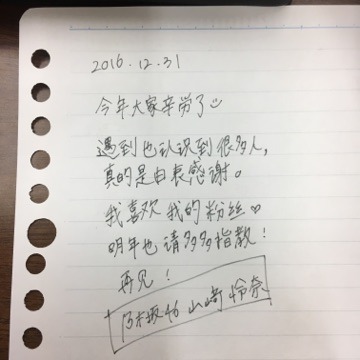 2016.12.31
今年大家辛劳了
遇到也认识到很多人,
真的是由衷感谢。
我喜欢 我的粉丝♡
明年也请多多指教!
再见!
乃木坂46 山崎 怜奈